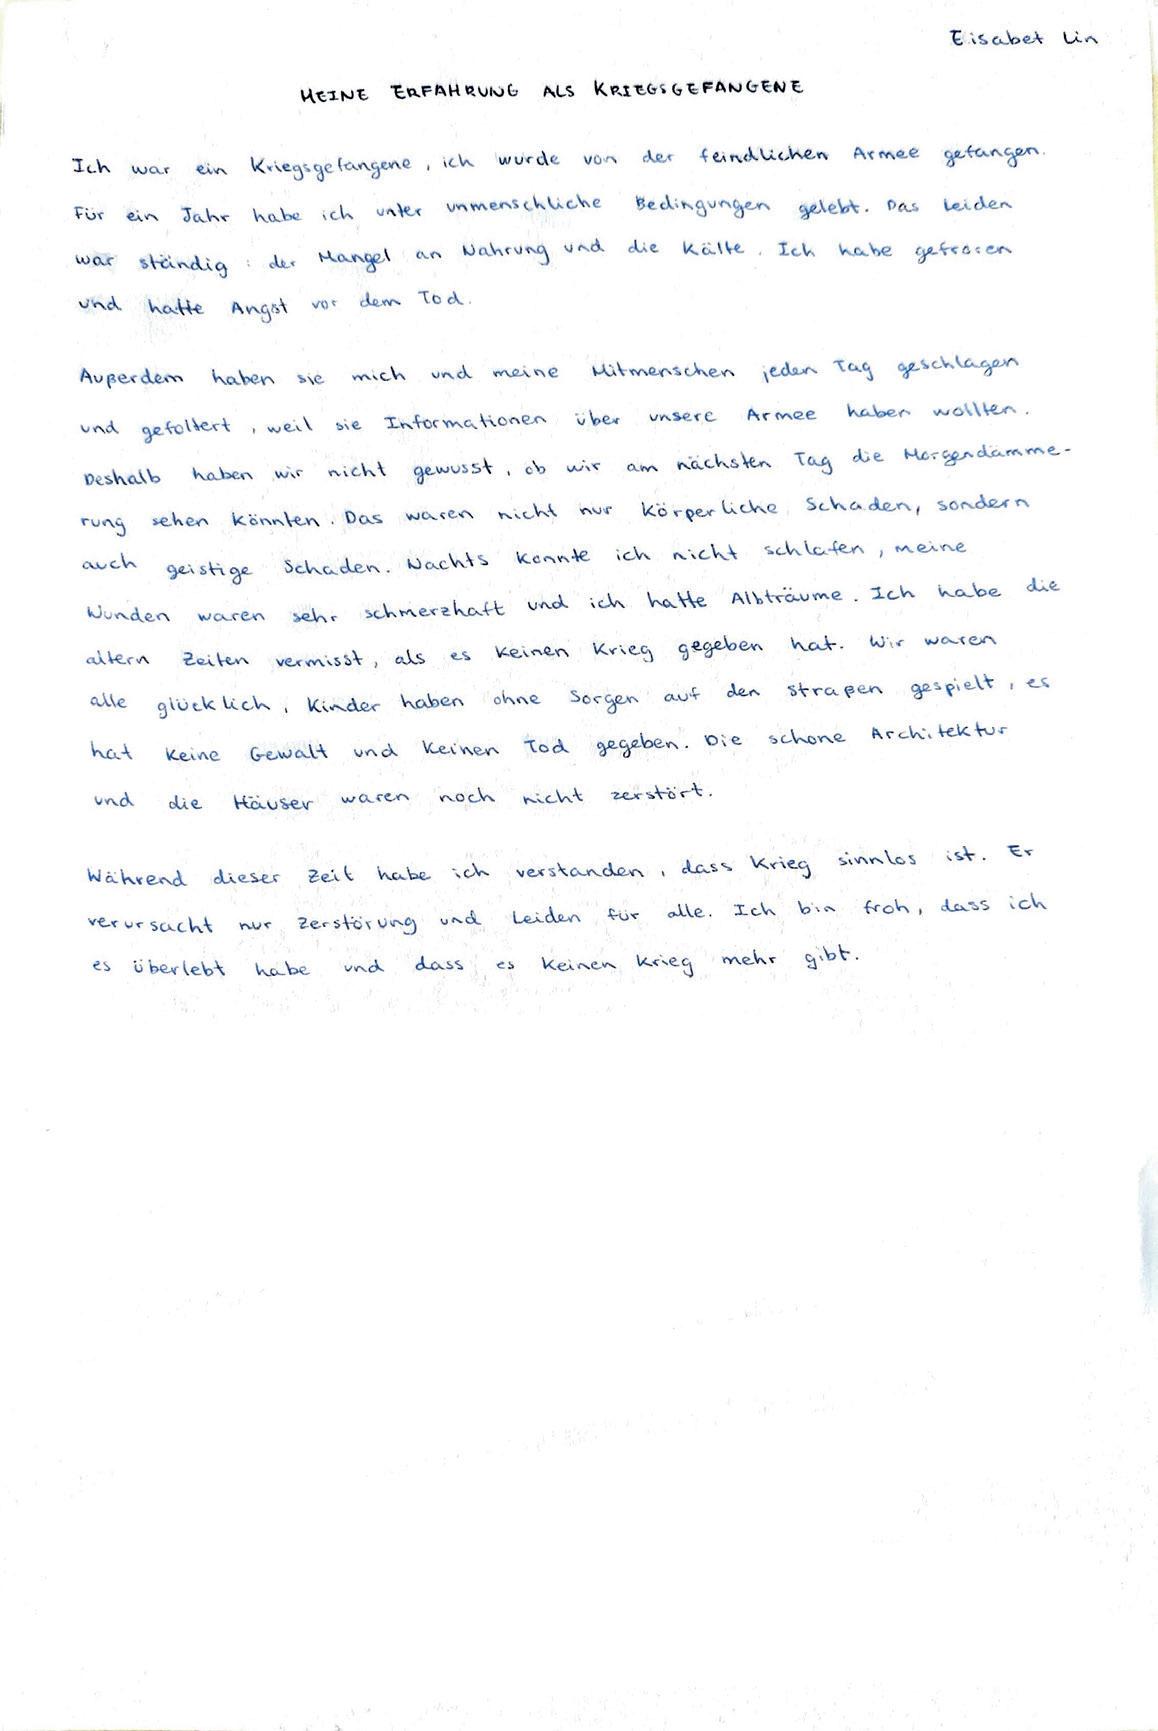 Elisabet Lin
MEINE ERFAHRUNG ALS KRIEGSGEFANGENE
Ich war ein Kriegsgefangene, ich wurde von der feindlichen Armee gefangen.
Für ein Jahr habe ich unter unmenschliche Bedingungen gelebt. Das Leiden
war ständig: der Mangel an Nahrung und die Kälte. Ich habe gefroren
und hatte Angst vor dem Tod.
Außerdem haben sie mich und meine Mitmenschen jeden Tag geschlagen
und gefoltert, weil sie Informationen über unsere Armee haben wollten.
Deshalb haben wir nicht gewusst, ob wir am nächsten Tag die Morgendämme-
rung sehen könnten. Das waren nicht nur körperliche Schaden, sondern
auch geistige Schaden. Nachts konnte ich nicht schlafen, meine
Wunden waren sehr schmerzhaft und ich hatte Albträume. Ich habe die
altern Zeiten vermisst, als es keinen Krieg gegeben hat. Wir waren
alle glücklich, Kinder haben ohne Sorgen auf den Straßen gespielt, es
hat keine Gewalt und keinen Tod gegeben. Die schöne Architektur
und die Häuser waren noch nicht zerstört.
Während dieser Zeit habe ich verstanden, dass Krieg sinnlos ist. Er
verursacht nur Zerstörung und Leiden für alle. Ich bin froh, dass ich
es überlebt habe und dass es keinen Krieg mehr gibt.